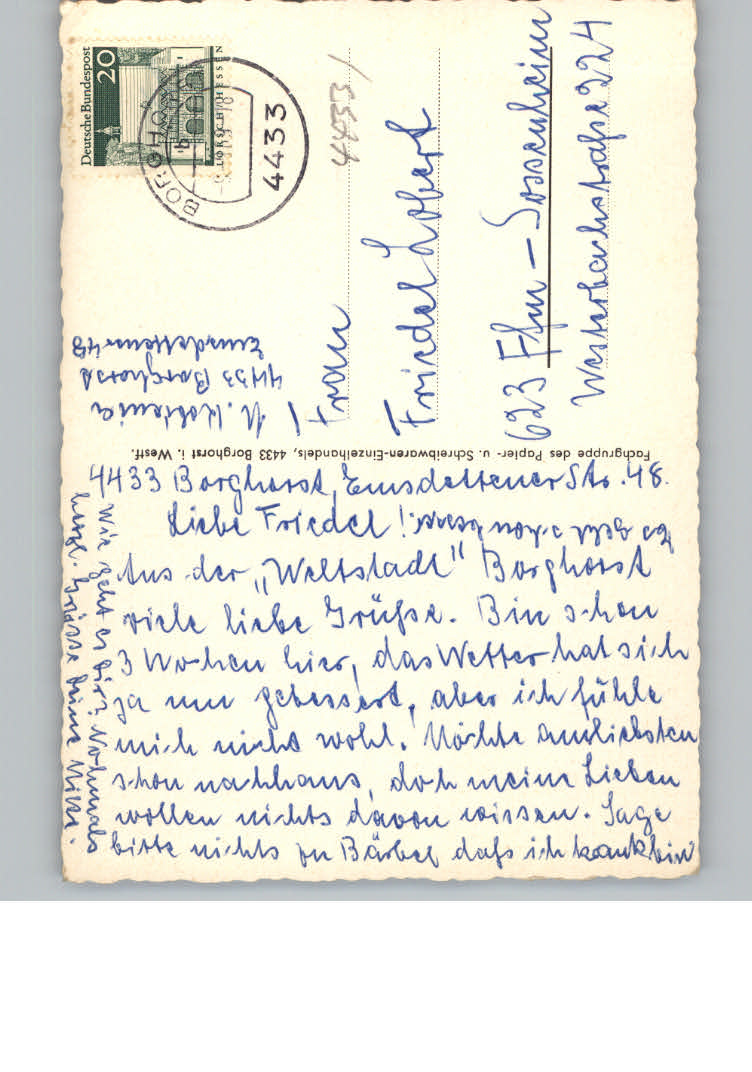 Deutsche Bundespost
20
LORSCH/HESSEN
BORGHORST
b
4433
4433
M. 
4433 Borghorst
Emsdettener 48
Frau
Friedel Lobert
623 Ffm-Sossenheim
Westerbachstraße 224
Fachgruppe des Papier- u. Schreibwaren-Einzelhandels, 4433 Borghorst i. Westf.
4433 Borghorst, Emsdettener Str. 48.
Liebe Friedel!
Aus der „Weltstadt" Borghorst
viele liebe Grüße. Bin schon
3 Wochen hier, das Wetter hat sich
ja nun gebessert, aber ich fühle
mich nicht wohl. Möchte am liebsten
schon nachhaus, doch meine Lieben
wollen nichts davon wissen. Sage
bitte nichts zu Bärbel daß ich krank bin
Wie geht es Dir? Nochmals
herzl. Grüsse Deine